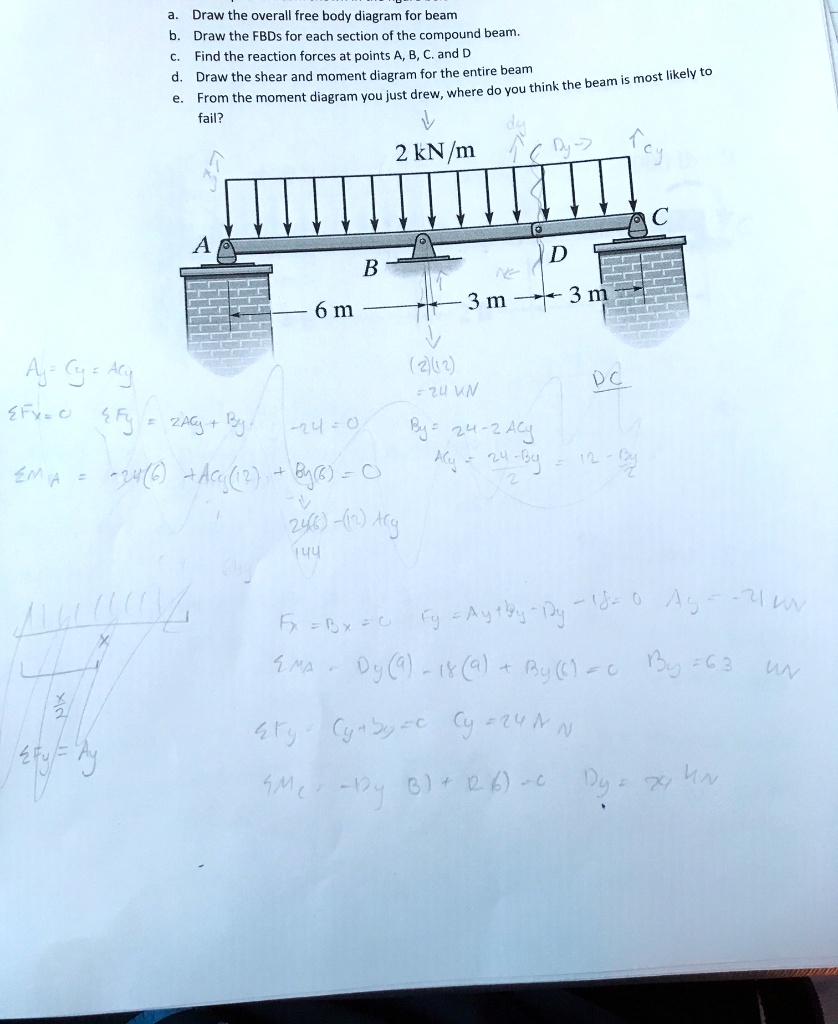 a. Draw the overall free body diagram for beam
b. Draw the FBDs for each section of the compound beam.
c. Find the reaction forces at points A, B, C. and D
d. Draw the shear and moment diagram for the entire beam
e. From the moment diagram you just drew, where do you think the beam is most likely to
fail?
dy
Dy
Cy
2 kN/m
Ay
A
C
B
D
6 m
3 m
3 m
Ay = Cy = ACy
(2)(12)
= 24 KN
DC
ΣFx = 0 ΣFy = 2ACy + By -24 = 0
By = 24 - 2 ACy
ACy = 24-By / 2 = 12 - By/2
ΣMA = -24(6) + ACy(12) + By(6) = 0
24(6) - (12) ACy
144
Fx = Bx = 0 Fy = Ay + By - Dy - 18 = 0 Ay = -21 KN
x
ΣMA = Dy(9) - 18(9) + By(6) = 0 By = 63 KN
x/2
ΣFy = Ay
ΣFy = Cy + Dy = 0 Cy = 24 N
ΣMC = -Dy 3) + 12 6) = 0 Dy = 24 KN